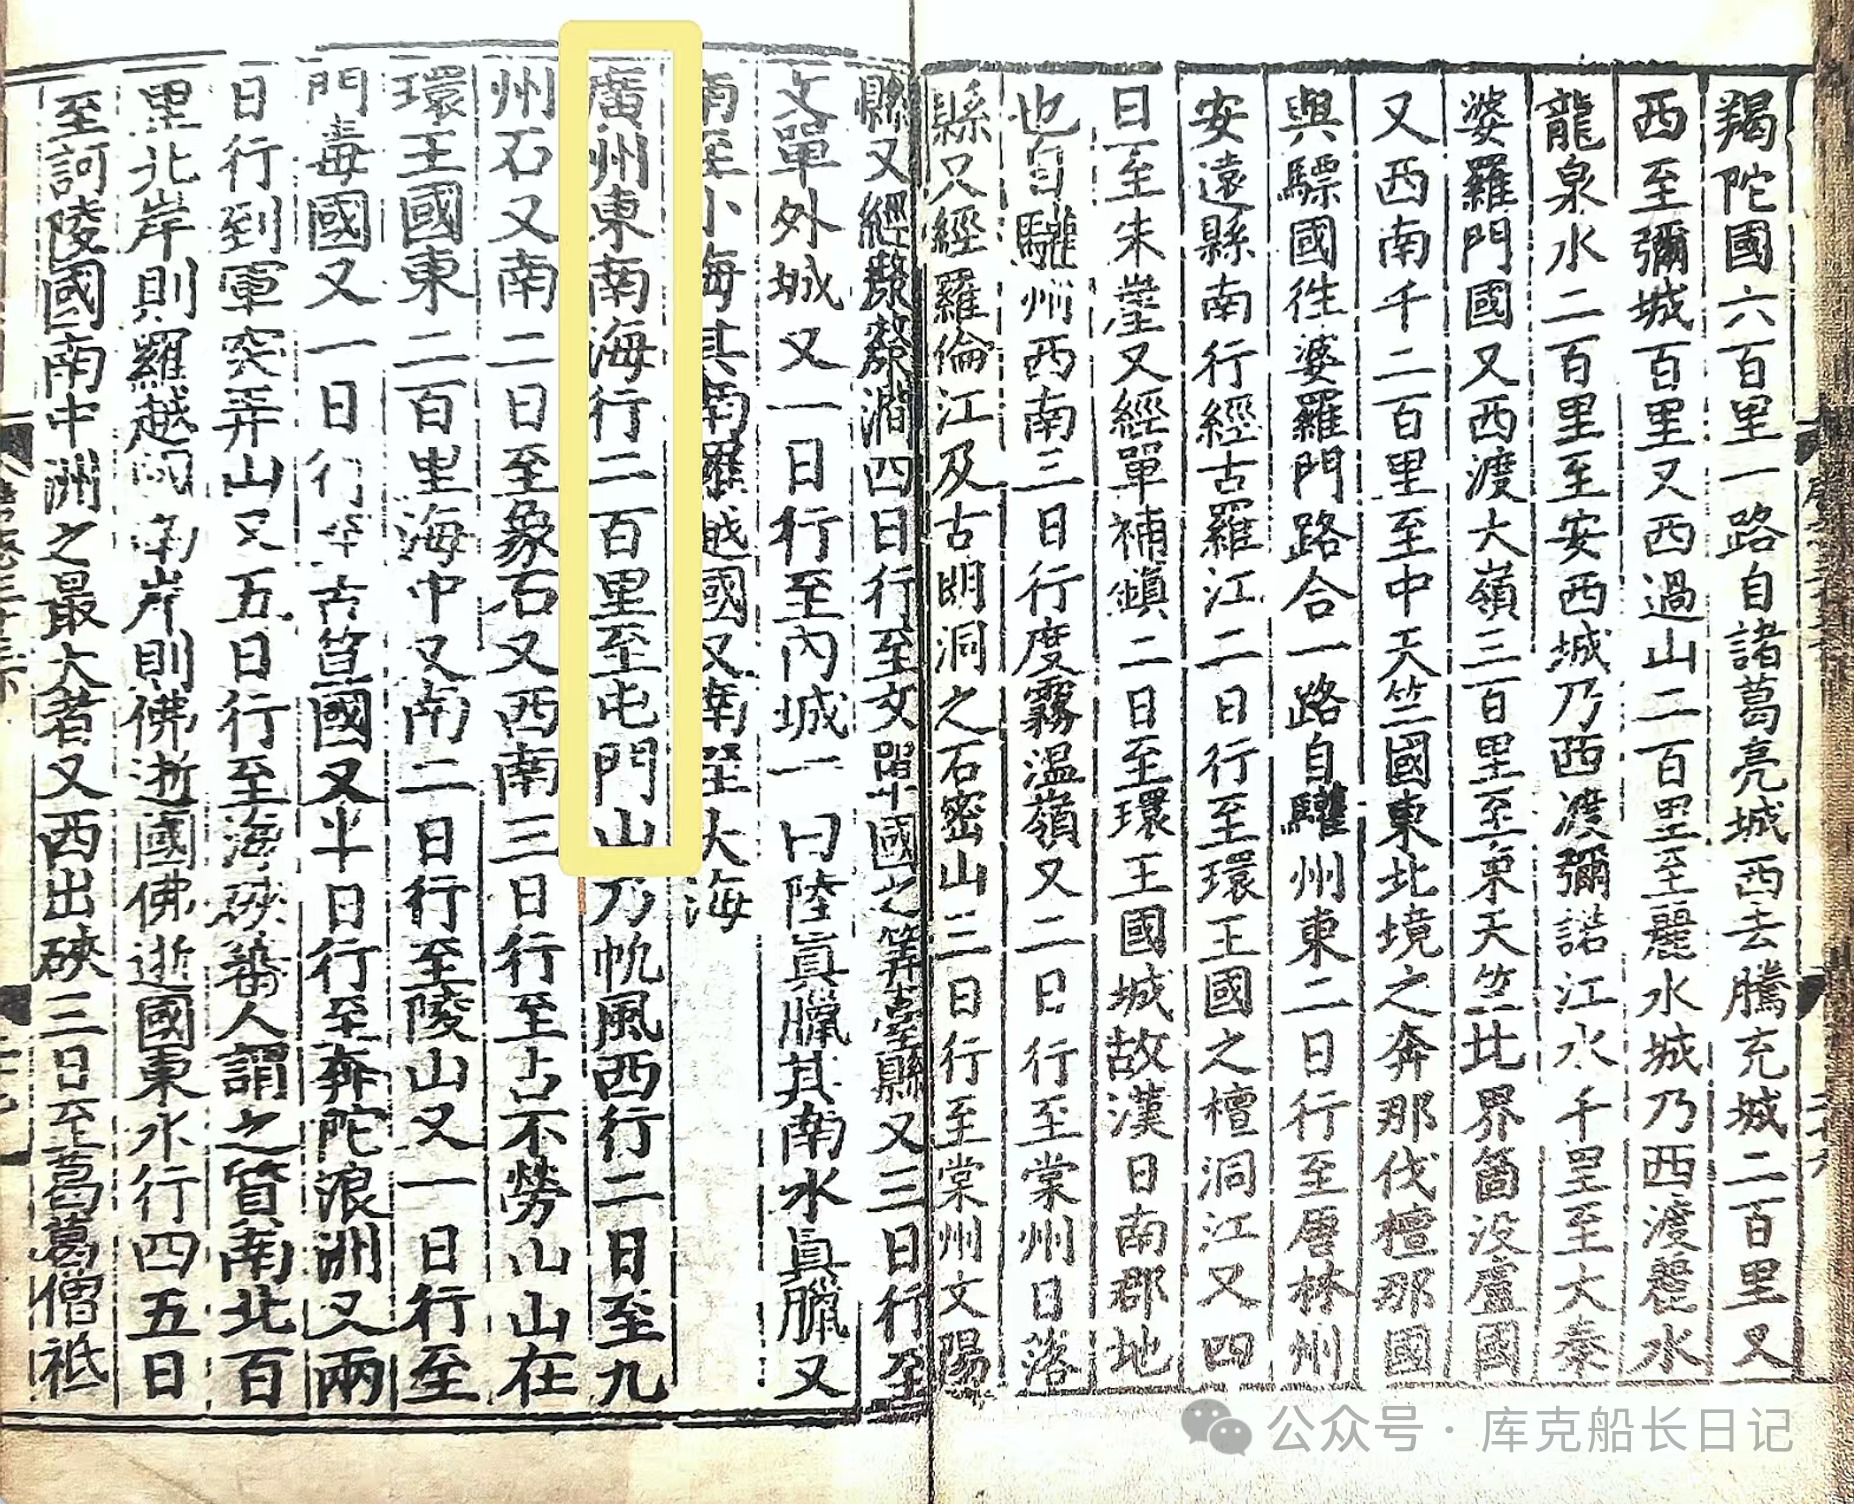 羯陀國六百里一路自諸葛亮城西去騰充城二百里又
西至彌城百里又西過山二百里至麗水城乃西渡麗水
龍泉水二百里至安西城乃西渡彌諾江水千里至大秦
婆羅門國又西渡大嶺三百里至東天竺北界箇沒盧國
又西南千二百里至中天竺國東北境之奔那伐檀那國
與驃國徃婆羅門路合一路自驩州東二日行至唐林州
安遠縣南行經古羅江二日行至環王國之檀洞江又四
日至朱崖又經單補鎮二日至環王國城故漢日南郡地
也自驩州西南三日行度霧溫嶺又二日行至棠州日落
縣又經羅倫江及古朗洞之石密山三日行至棠州文陽
縣又經漦漦澗四日行至文單國之筭臺縣又三日行至
文單外城又一日行至內城一曰陸真臘其南水真臘又
南至小海其南羅越國又南至大海
廣州東南海行二百里至屯門山乃帆風西行二日至九
州石又南二日至象石又西南三日行至占不勞山山在
環王國東二百里海中又南二日行至陵山又一日行至
門毒國又一日行至古笪國又半日行至奔陀浪洲又兩
日行到軍突弄山又五日行至海硤蕃人謂之質南北百
里北岸則羅越國南岸則佛逝國佛逝國東水行四五日
至訶陵國南中洲之最大者又西出硤三日至葛葛僧祇
公众号·库克船长日记